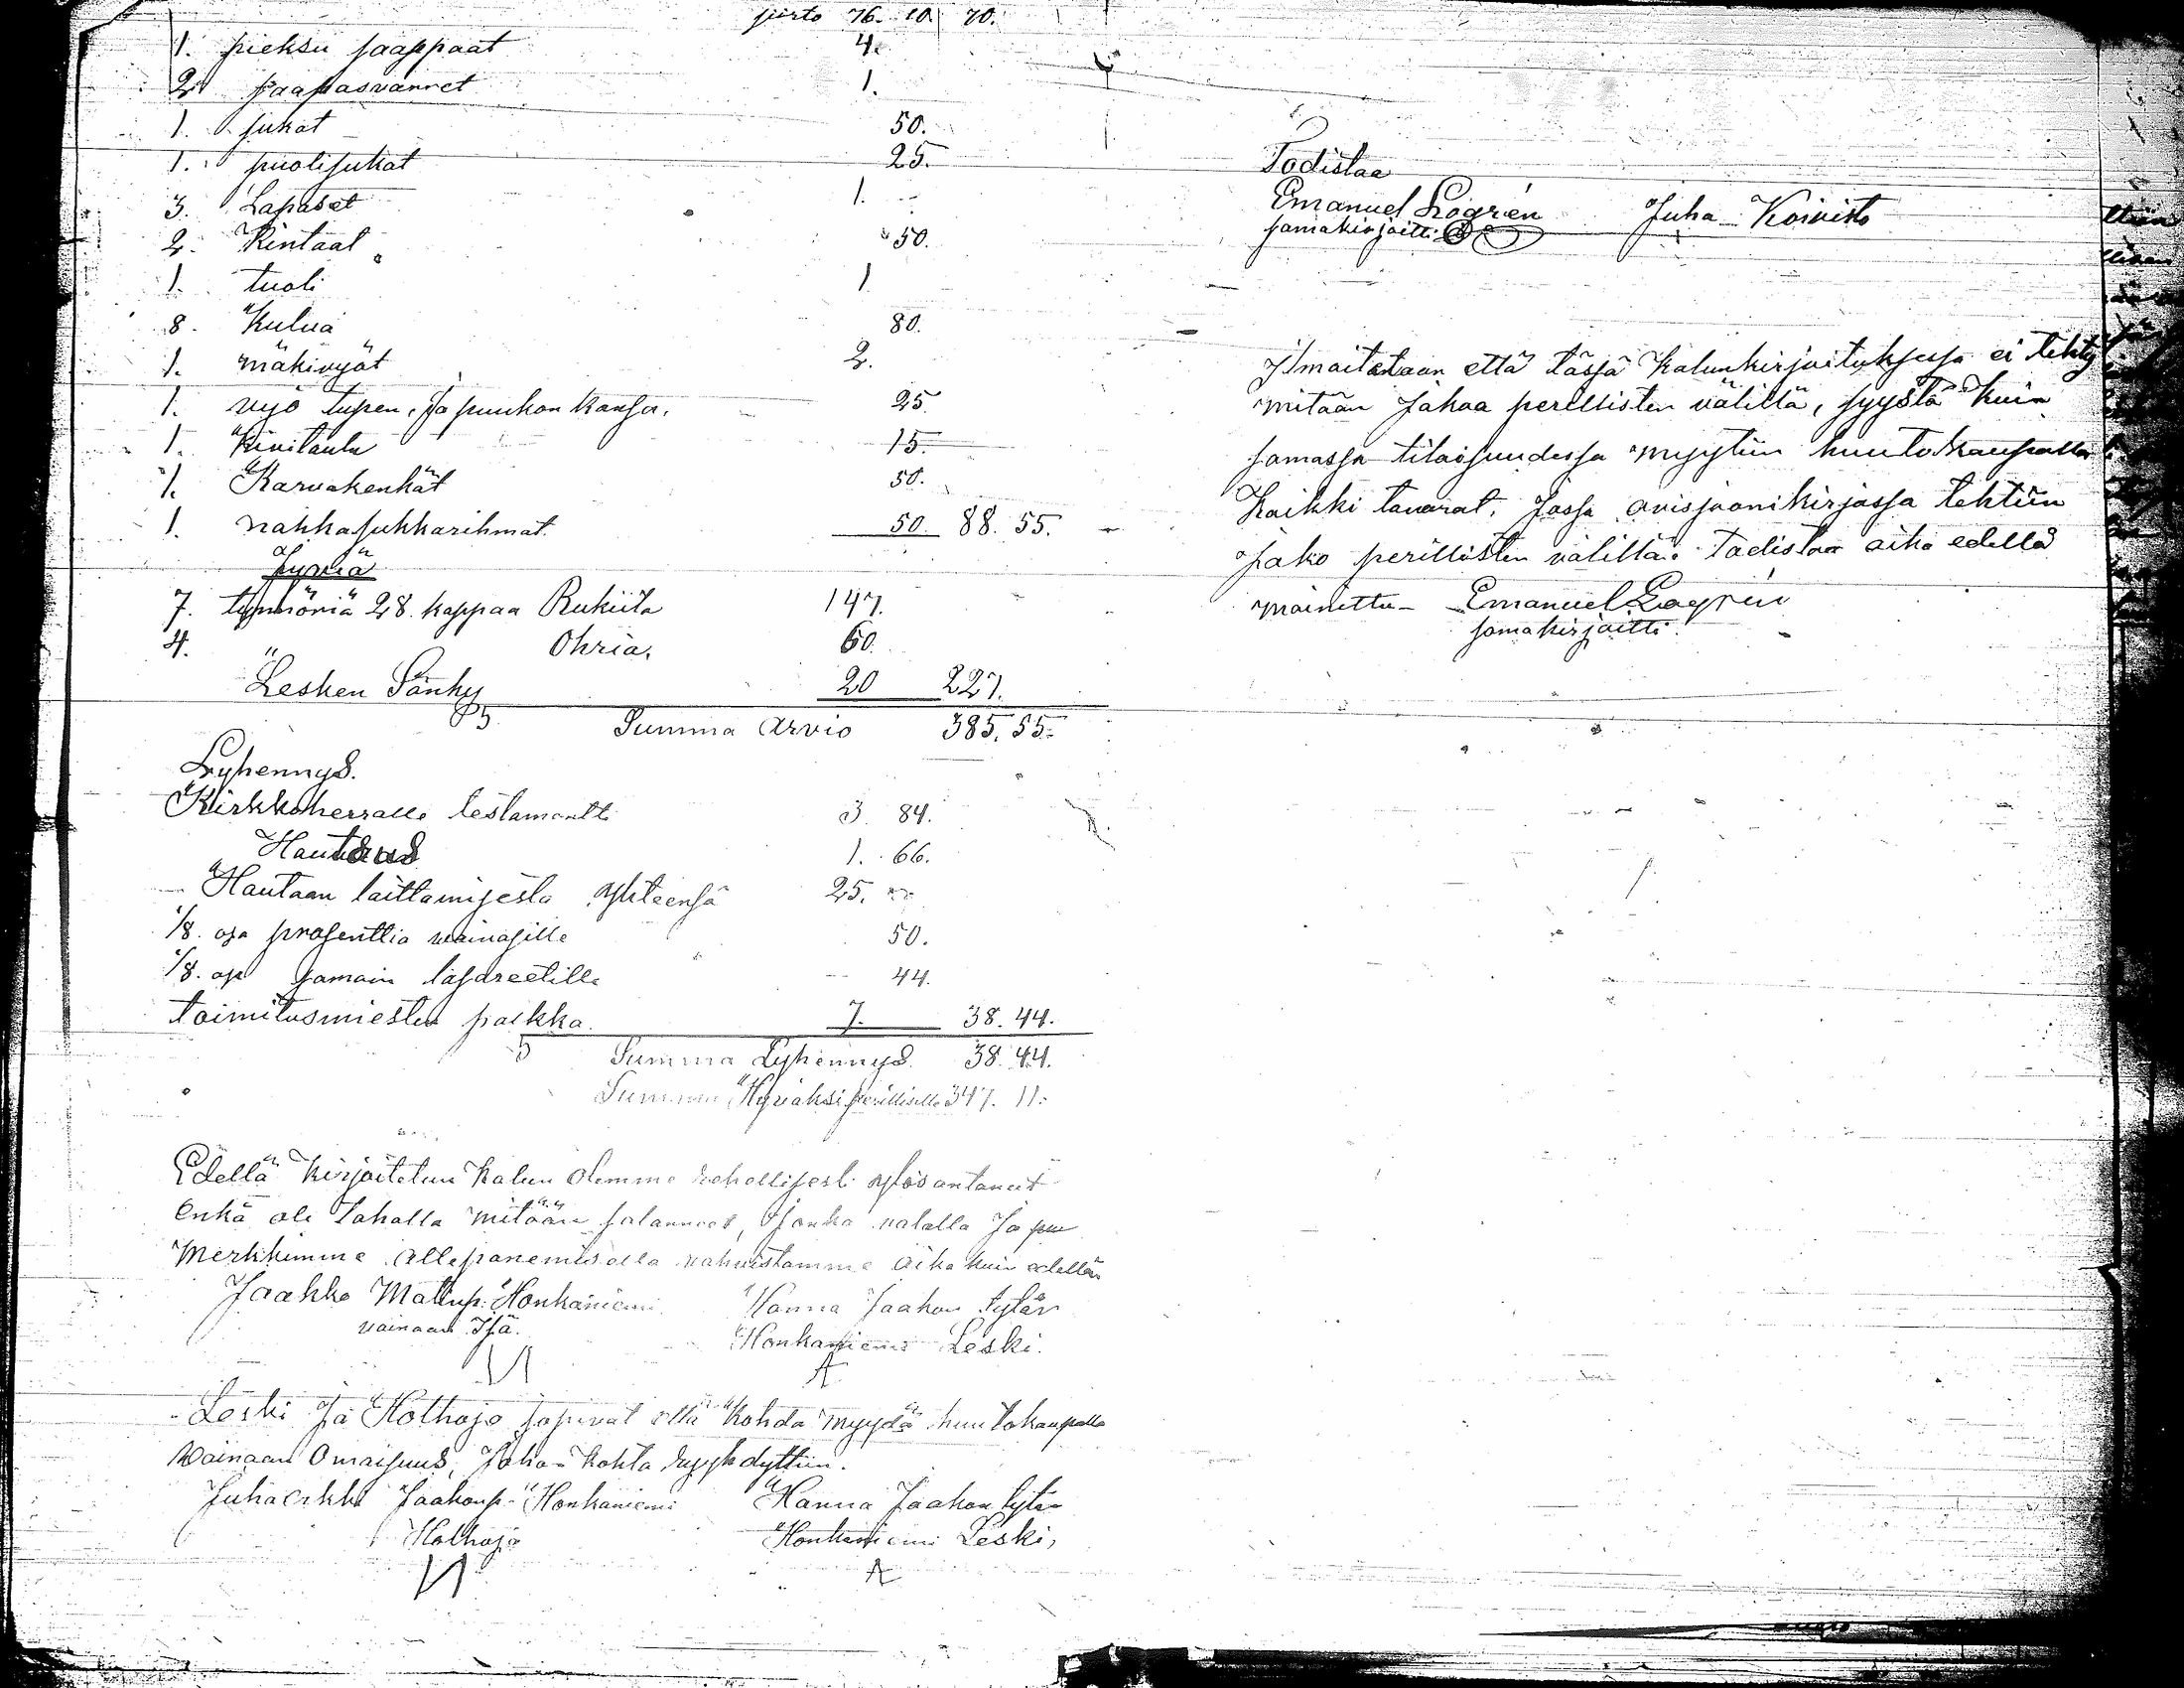 siirto 76. 10. 70.
1. pieksu saappaat 4.
2 saapasvarret 1.
1. sukat 50.
1. puolisukat 25.
3. Lapaset 1.
2. Kintaat 50.
1. tuoli 1
8. Kulua 80.
1. mäkivyöt 2.
1. vyö tupen, ja puukon kansa. 25.
1. Kivitaulu 15.
1. Karvakenkät 50.
1. nahkasukkarihmat. 50. 88. 55.
Jyviä
7. tynnöriä 28. kappaa Rukiita 147.
4. " Ohria. 60.
Lesken Sänky 20 227.
Summa Arvio 385. 55.
Lyhennys.
Kirkkoherralle testamentti 3 84.
Hautaus 1. 66.
Hautaan laittamisesta yhteensä 25.
1/8. osa prosenttia vaivasille 50.
1/8. osa samain lasareetille 44.
toimitusmiesten palkka. 7. 38. 44.
Summa Lyhennys. 38. 44.
Summa Hyväksi perillisille 347. 11.
Edellä kirjoitetun Kalun olemme rehellisesti ylösantaneet
enkä ole tahalla mitään salanneet, jonka valalla ja puu
Merkkimme allepanemisella vahvistamme aika kuin edellä
Jaakko Matinp. Honkaniemi Hanna Jaakon tytär
vainaan Isä. Honkaniemi Leski.
Leski ja Holhoja sopivat että kohda myydä huutokaupalla
Vainaan Omaisuus, Johon kohta ryyhdyttiin.
Juha Erkki Jaakonp. Honkaniemi Hanna Jaakon tytär
Holhoja Honkaniemi Leski,
Todistaa
Emanuel Logrén Juha Koivisto
samakirjoitti
Ilmoitetaan että tässä Kalunkirjoituksessa ei tehty
mitään Jakoa perillisten välillä, syystä kuin
samassa tilaisuudessa myytiin huutokaupalla
Kaikki tavarat. Jossa avisjoonikirjassa tehtiin
Jako perillisten välillä. Todistaa aika edellä
mainittu – Emanuel Logrén
samakirjoitti.